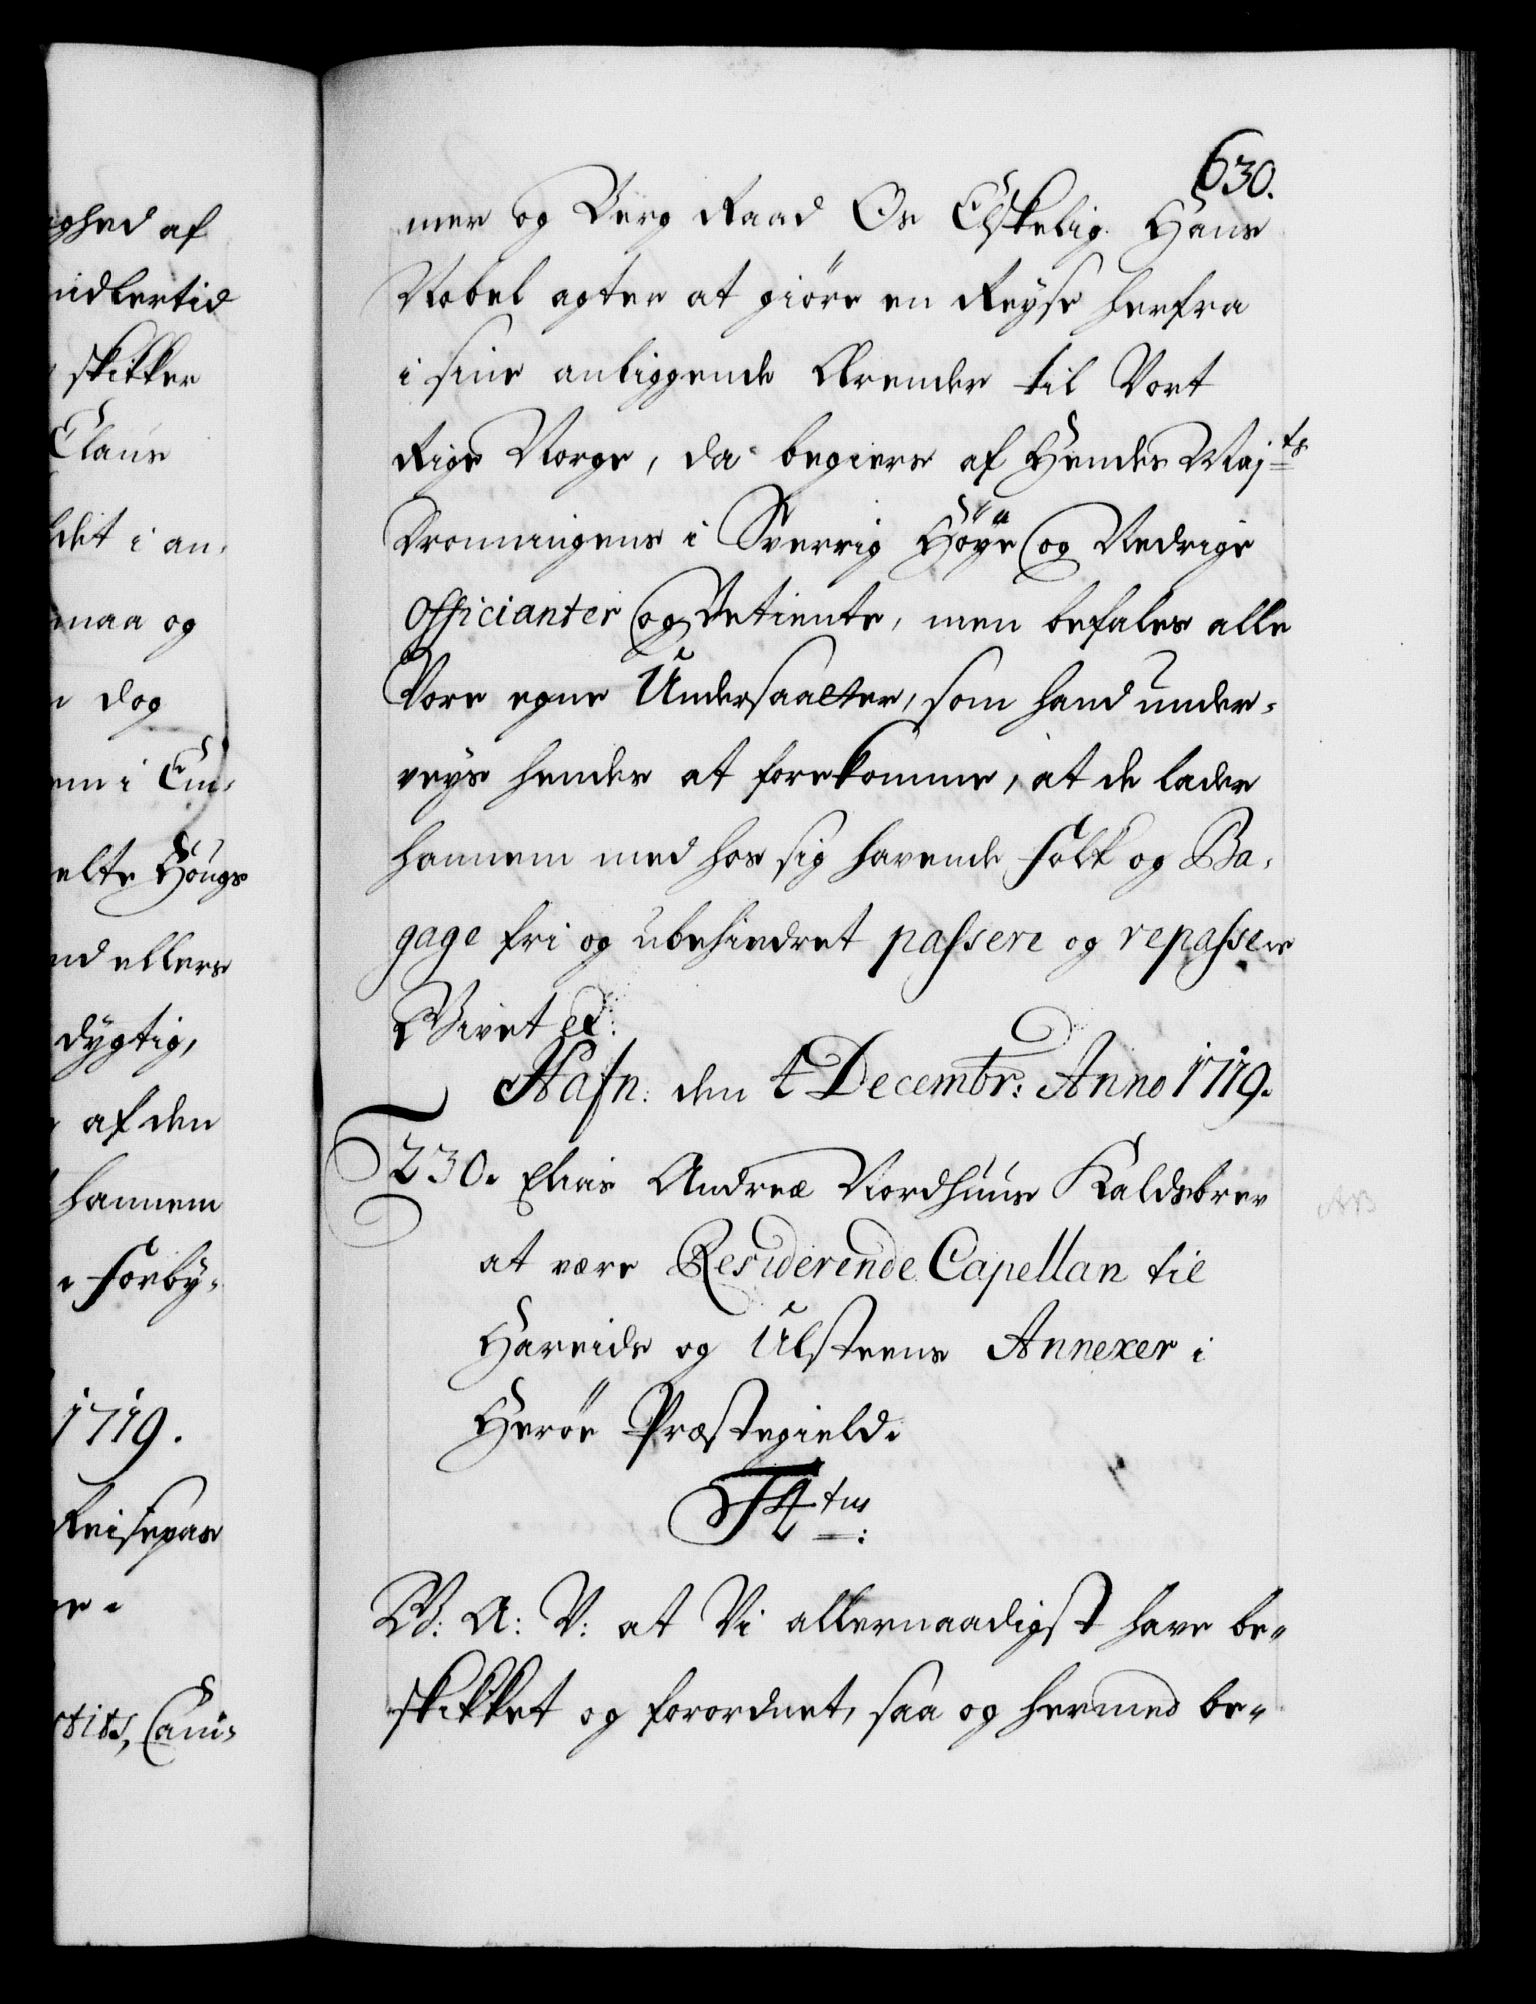 630.
mer og Berg Raad Os Elskelig Hans
Nobel agter at giöre en Reyse herfra
i sine anliggende Ærender til Vort
Rige Norge, da begiers af Hendes Majts
Dronningens i Sverrig Höye og Nedrige
Officianter og Betiente, men befales alle
Vore egne Undersaatter, som hand under-
veys hendes at forekomme, at de lader
hannem med hos sig havende Folk og Ba-
gage fri og ubehindret passere og repassere
Givet etc:
Hafn: den 4 Decembr: Anno 1719.
230. Elias Andreæ Nordhuus Kaldsbrev
at være Residerende Capellan til
Hareids og Ulsteens Annexer i
Heröe Præstegield.
F4tus:
G: A: V: at Vi allernaadigst have be-
skikket og forordnet, saa og hermed be-
ghed af
midlertid
skikker
Claus
det i an-
maa og
dog
em i Em-
elte Hougs
nd ellers
dygtig,
af den
hannem
Forby-
1719.
Reisepas
stits, Cam-